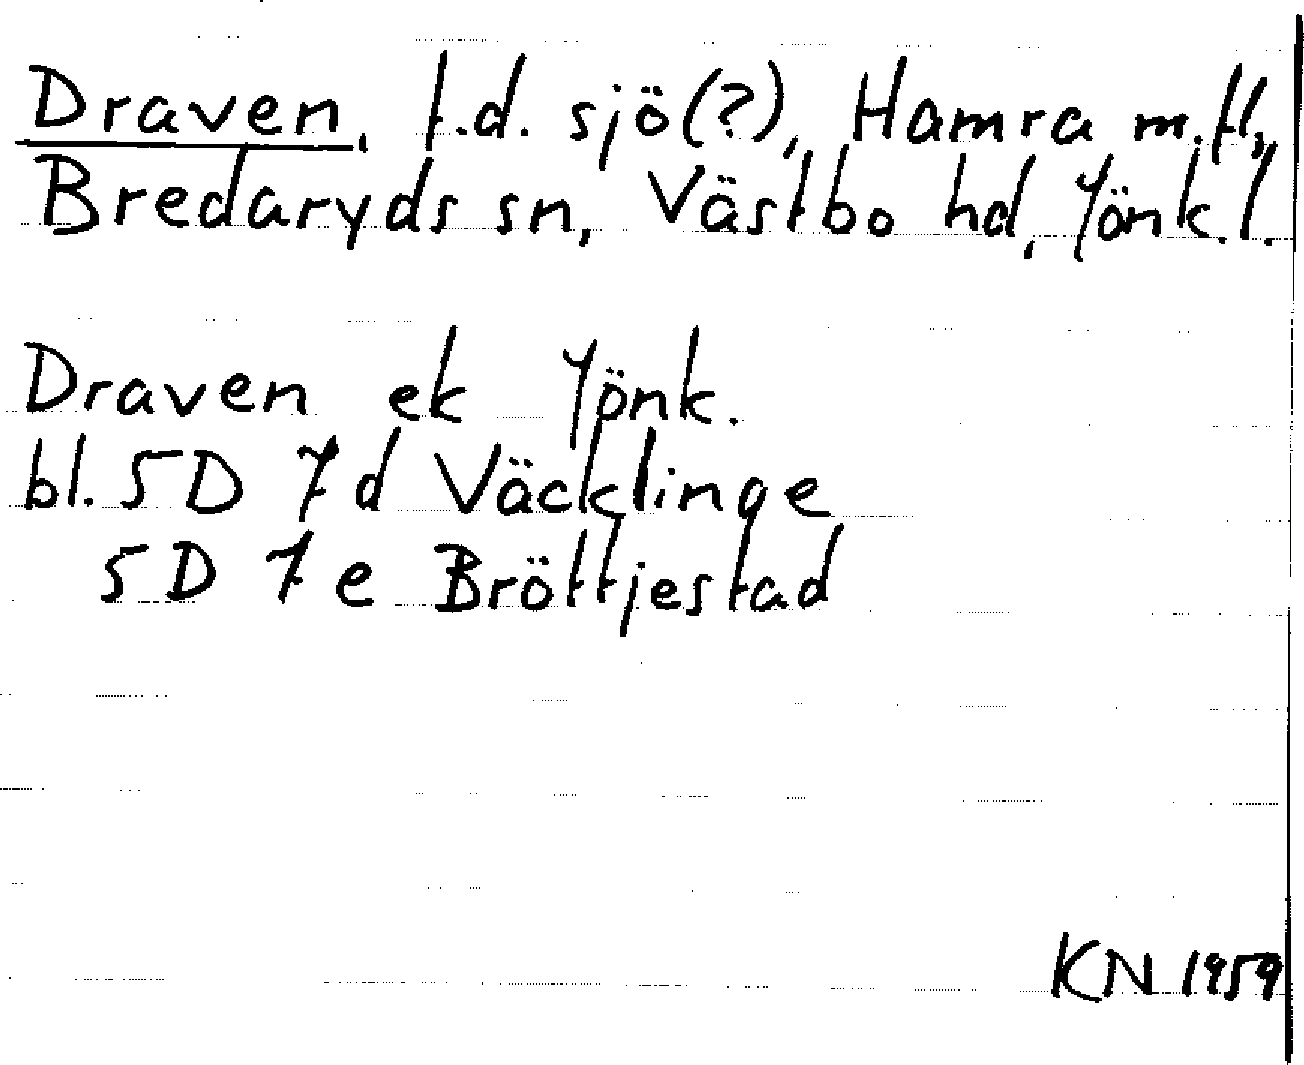 Draven, f.d. sjö(?), Hamra m.fl.,
Bredaryds sn, Västbo hd, Jönk.l.
Draven ek Jönk.
bl. 5D 7d Väcklinge
5D 7e Bröttjestad
KN 1959